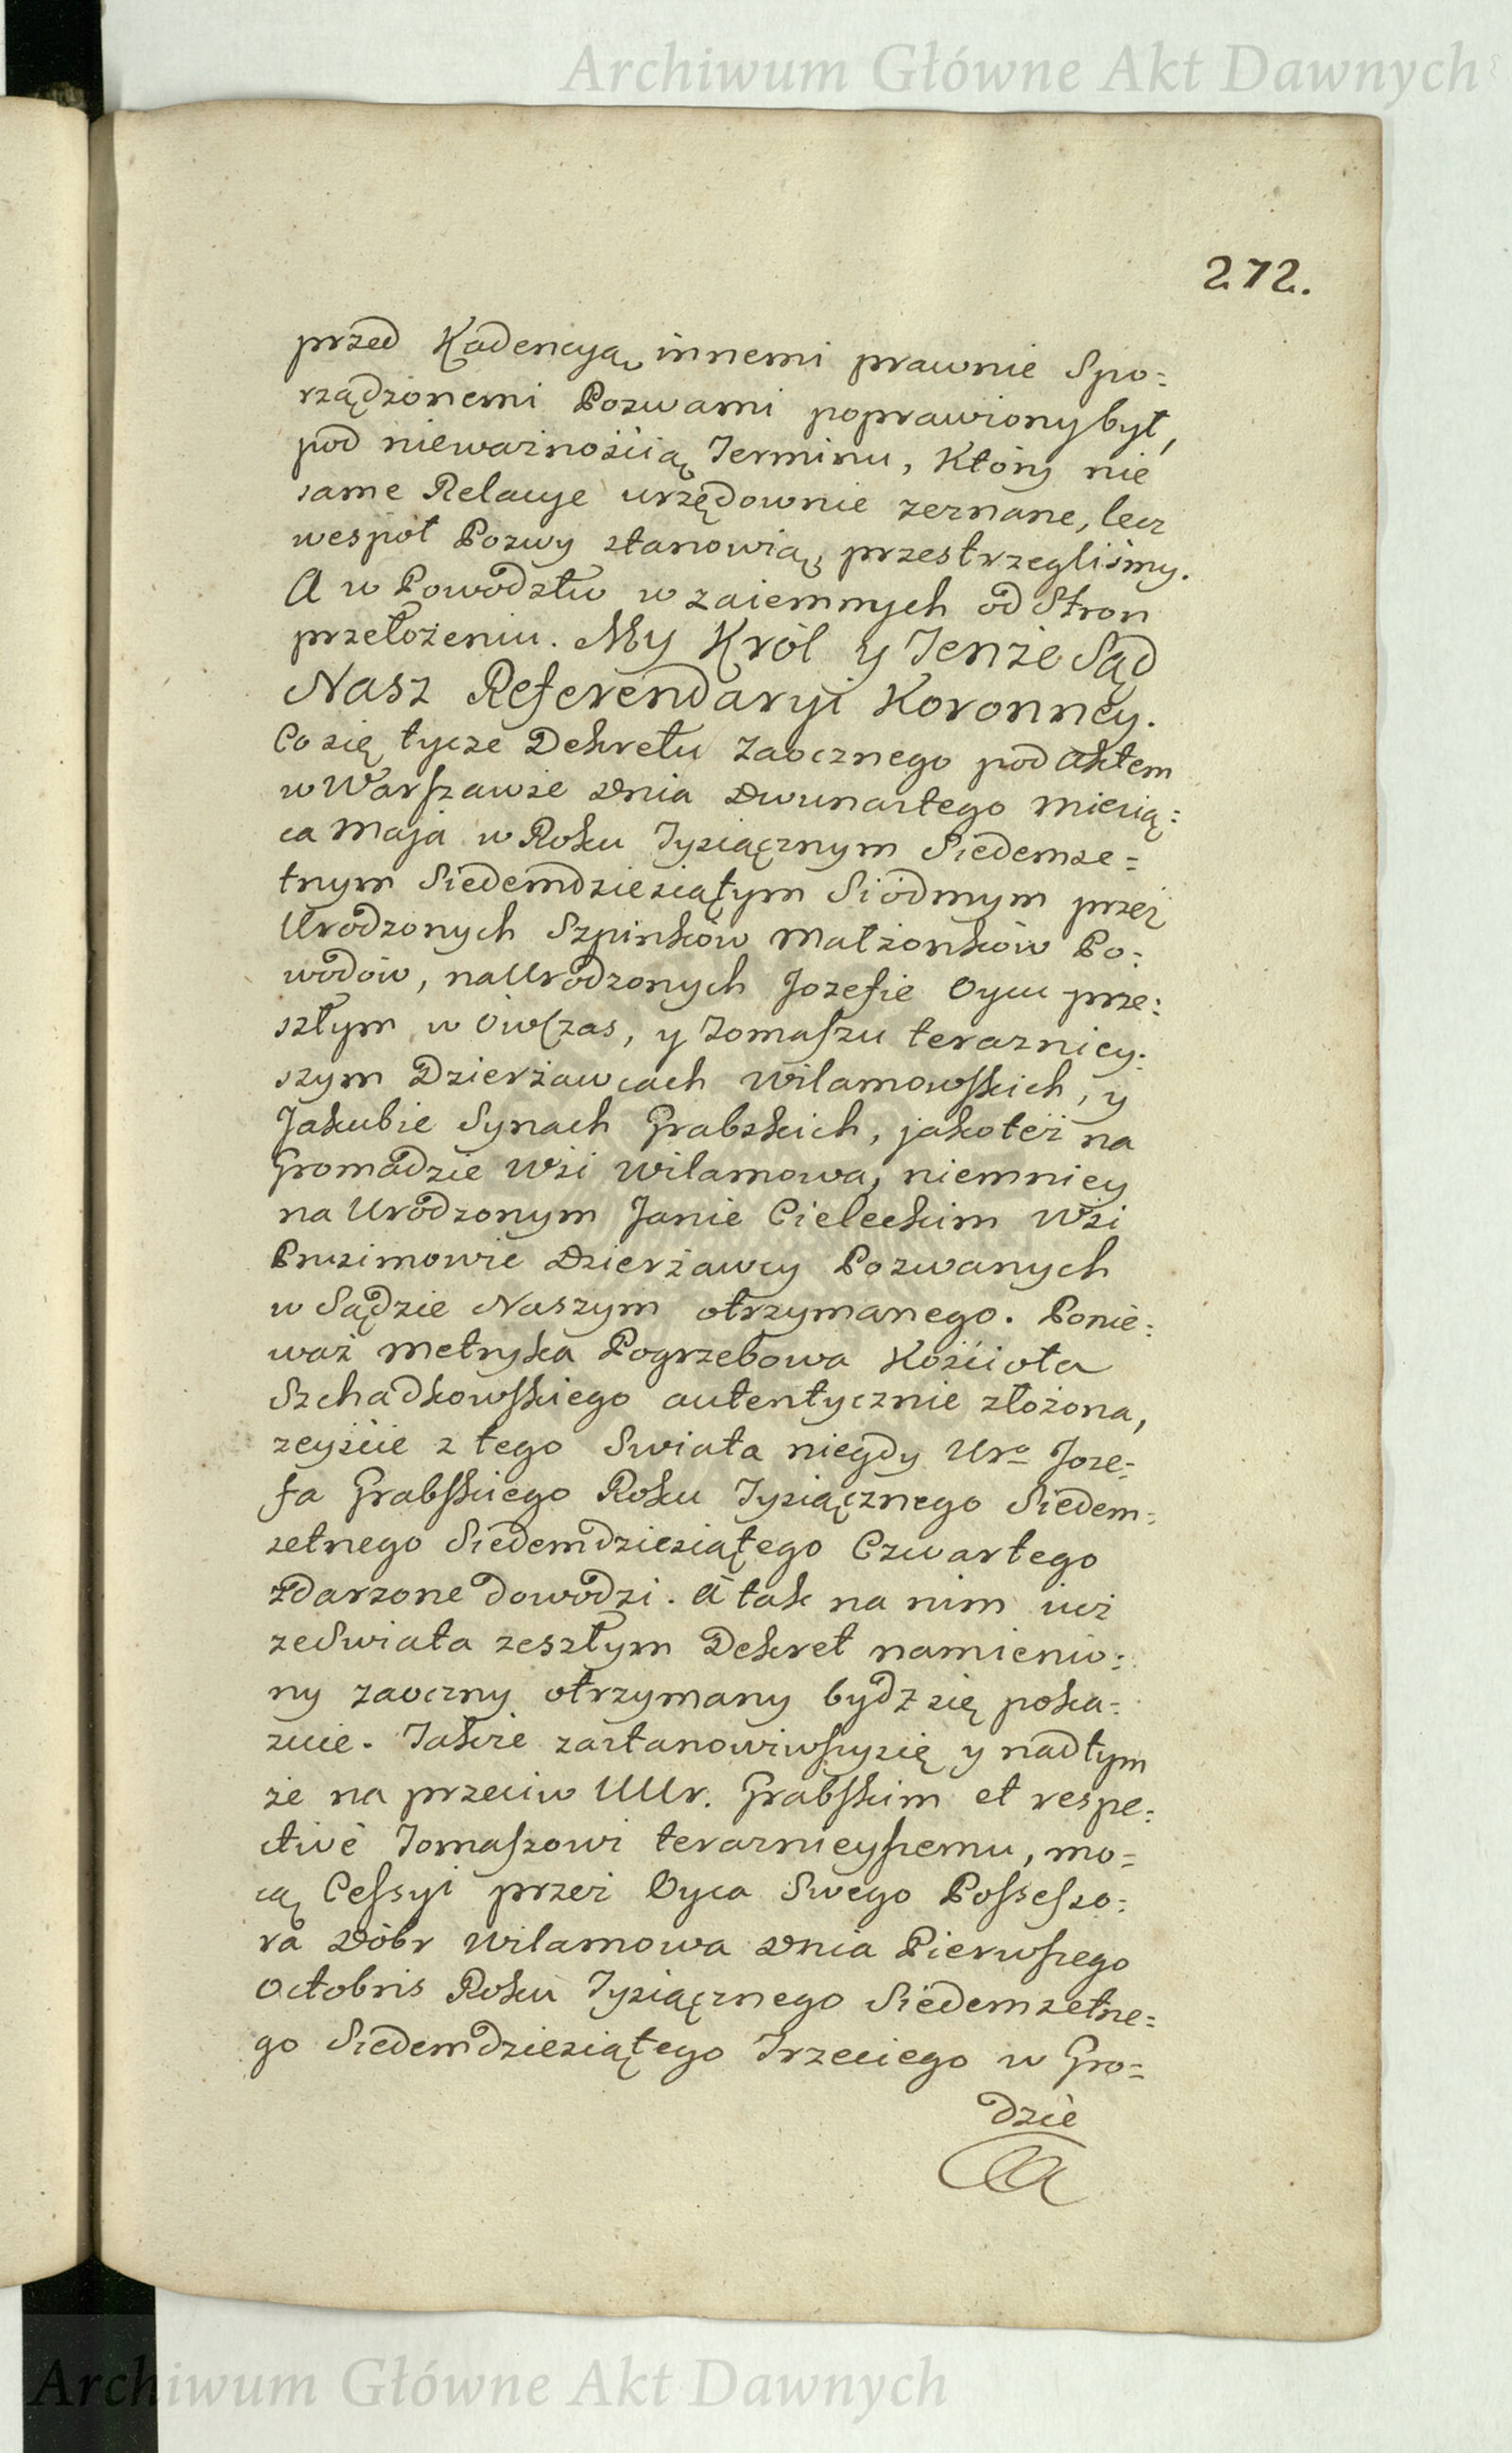 Archiwum Główne Akt Dawnych
272.
przed Kadencyą innemi prawnie Spo=
rządzonemi Pozwami poprawiony był,
pod nieważnością Terminu, Który nie
same Relacye urzędownie zeznane, lecz
wespół Pozwy stanowią, przestrzegliśmy.
A w Powodztw wzaiemnych od Stron
przełożeniu. My Król y Tenże Sąd
Nasz Referendaryi Koronney.
Co się tycze Dekretu Zaocznego pod Aktem
w Warszawie Dnia Dwunastego Miesią=
ca Maja w Roku Tysiącznym Siedemse=
tnym Siedemdziesiątym Siódmym przez
Urodzonych Szpinków Małżonków Po=
wodów, na Urodzonych Jozefie Oycu prze=
szłym w ówczas, y Tomaszu terazniey=
szym Dzierżawcach Wilamowskich, y
Jakubie Synach Grabskich, jakoteż na
Gromadzie Wsi Wilamowa, niemniey
na Urodzonym Janie Cieleckim Wsi
Prusimowie Dzierżawcy Pozwanych
w Sądzie Naszym otrzymanego. Ponie=
waż Metryka Pogrzebowa Kościoła
Szchadkowskiego autentycznie złożona,
zeyście z tego Swiata niegdy Uro Joze=
fa Grabskiego Roku Tysiącznego Siedem=
setnego Siedemdziesiątego Czwartego
zdarzone dowodzi. A tak na nim iuż
ze Swiata zeszłym Dekret namienio=
ny zaoczny otrzymany bydz się poka=
zuie. Także zastanowiwszy się y nad tym
że na przeciw UUr. Grabskim et respe=
ctivè Tomaszowi teraznieyszemu, mo=
cą Cessyi przez Oyca Swego Possesso=
ra Dóbr Wilamowa Dnia Pierwszego
Octobris Roku Tysiącznego Siedemsetne=
go Siedemdziesiątego Trzeciego w Gro=
dzie
Archiwum Główne Akt Dawnych